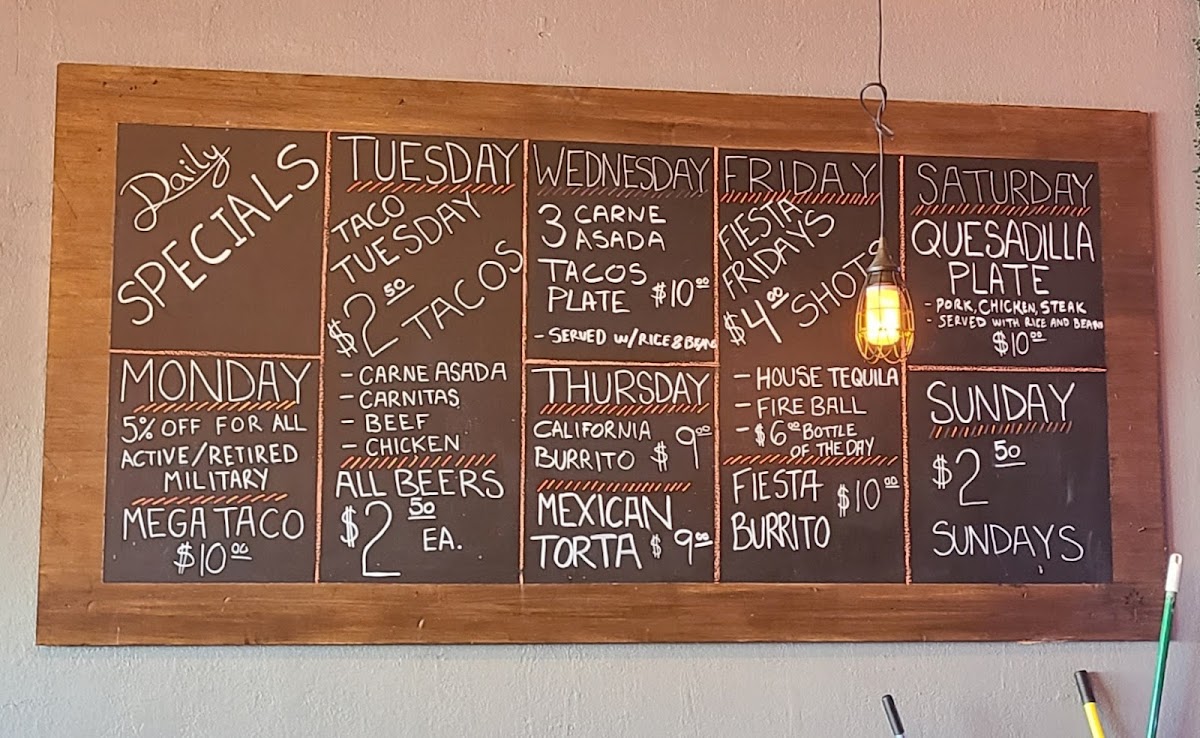 Daily
SPECIALS
MONDAY
5% OFF FOR ALL
ACTIVE/RETIRED
MILITARY
MEGA TACO
$10.00
TUESDAY
TACO
TUESDAY
$2.50
TACOS
- CARNE ASADA
- CARNITAS
- BEEF
- CHICKEN
ALL BEERS
$2.50 EA.
WEDNESDAY
3 CARNE
ASADA
TACOS
PLATE $10.00
- SERVED W/RICE & BEANS
THURSDAY
CALIFORNIA
BURRITO $9.00
MEXICAN
TORTA $9.00
FRIDAY
FIESTA
FRIDAYS
$4.00 SHOTS
- HOUSE TEQUILA
- FIRE BALL
- $6.00 BOTTLE
OF THE DAY
FIESTA $10.00
BURRITO
SATURDAY
QUESADILLA
PLATE
- PORK, CHICKEN, STEAK
- SERVED WITH RICE AND BEANS
$10.00
SUNDAY
$2.50
SUNDAYS